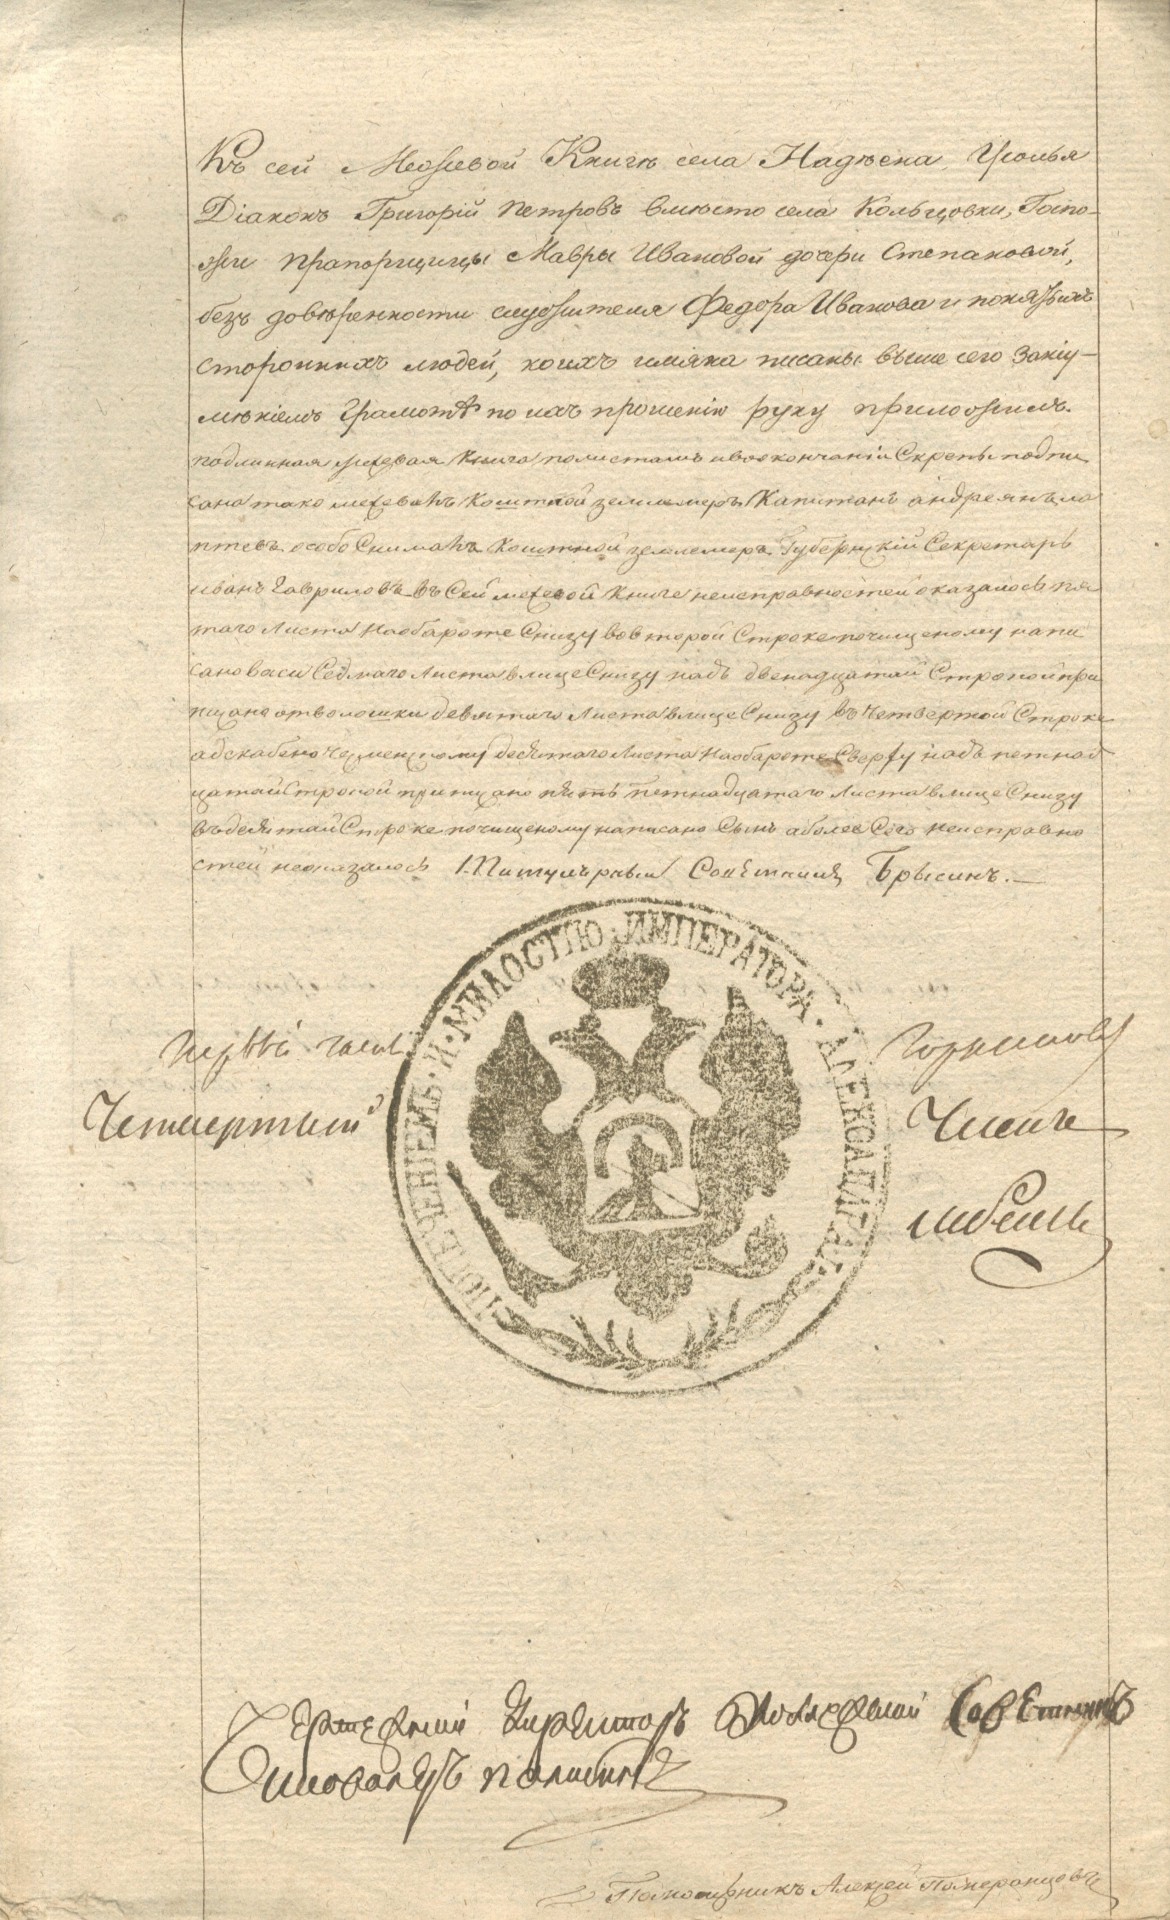 Къ сей Межевой Книгѣ села Надѣена Усолья
Діаконъ Григорій Петровъ вмѣсто села Кольцовки, Госпо-
жи прапорщицы Мавры Ивановой дочери Степановой,
безъ довѣренности служителя Федора Иванова и понятыхъ
стороннихъ людей, коихъ имяна писаны выше сего за неу-
мѣніемъ Грамотѣ по ихъ прошенію руку приложилъ.
подлинная межевая книга по листамъ и въ окончаніи Скрепы подпи
сана тако межевалъ Коштной землемеръ Капитанъ андреянъ ла
птевъ особо Снималъ коштной землемеръ Губернскій Секретарь
иванъ Гавриловъ въ Сей межевой Книге неисправностей оказалось пя
таго Листа Наобароте Снизу во второй Строке почищеному напи
сано васи Седмаго Листа в лице Снизу надъ двенадцатай Строкой при
писано отволошки девятаго Листа в лице Снизу въ четвертой Строке
десятаго Листа Наобароте Сверху надъ петнад
цатай Строкой приписано пять петнадцатаго Листа в лице Снизу
въ десятай Строке почищеному написано Сынъ аболее Сего неисправно
стей неоказалось Титулярный Советникъ Брысинъ.
ПОПЕЧЕНІЕМЪ · И · МИЛОСТІЮ · ИМПЕРАТОРА · АЛЕКСАНДРА
Четвертый
Членъ
Чертежный Директоръ Коллежской Советникъ
Помощникъ Алексей Померанцовъ